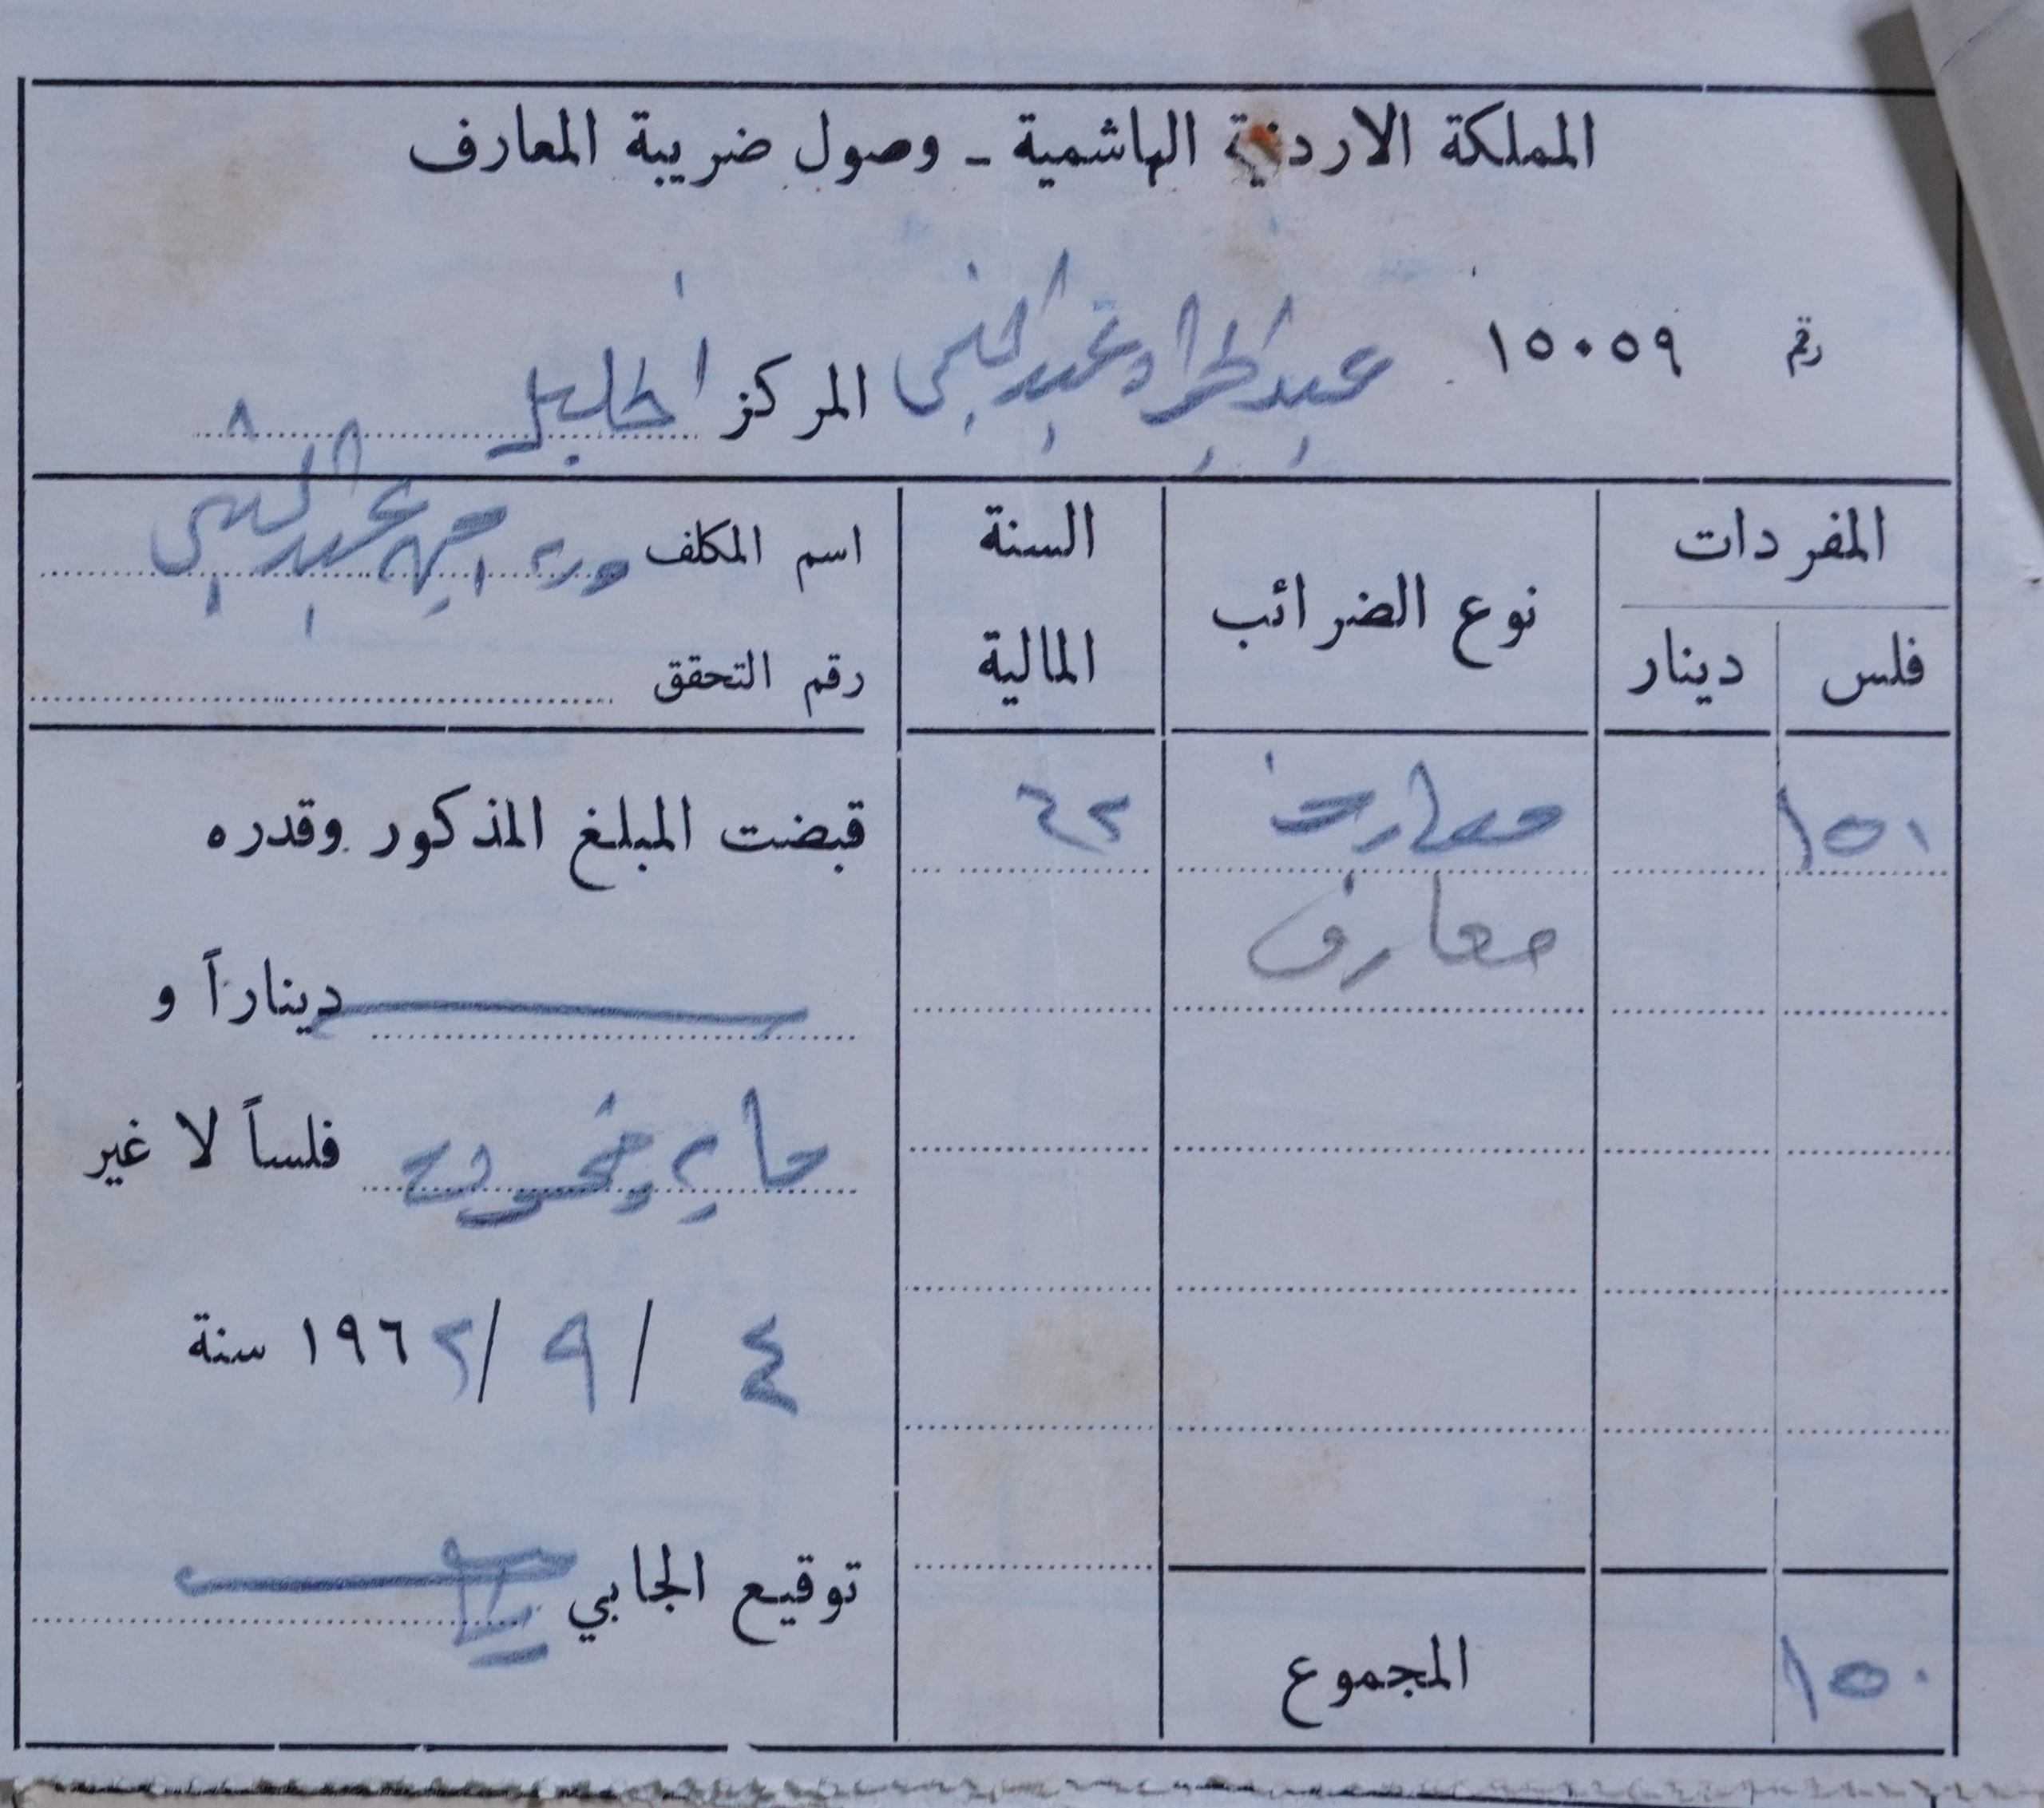 المملكة الاردنية الهاشمية - وصول ضريبة المعارف
رقم ١٥٠٥٩ عبد الجواد وعبد الغني المركز الخليل
المفردات
فلس دينار
نوع الضرائب
السنة المالية
اسم المكلف ورثة عبد النبي
رقم التحقق
١٥٠ معارف ٦٢
معارف
قبضت المبلغ المذكور وقدره
ديناراً و
ماية وخمسون فلساً لا غير
٤ / ٩ / ١٩٦٢ سنة
توقيع الجابي
المجموع ١٥٠